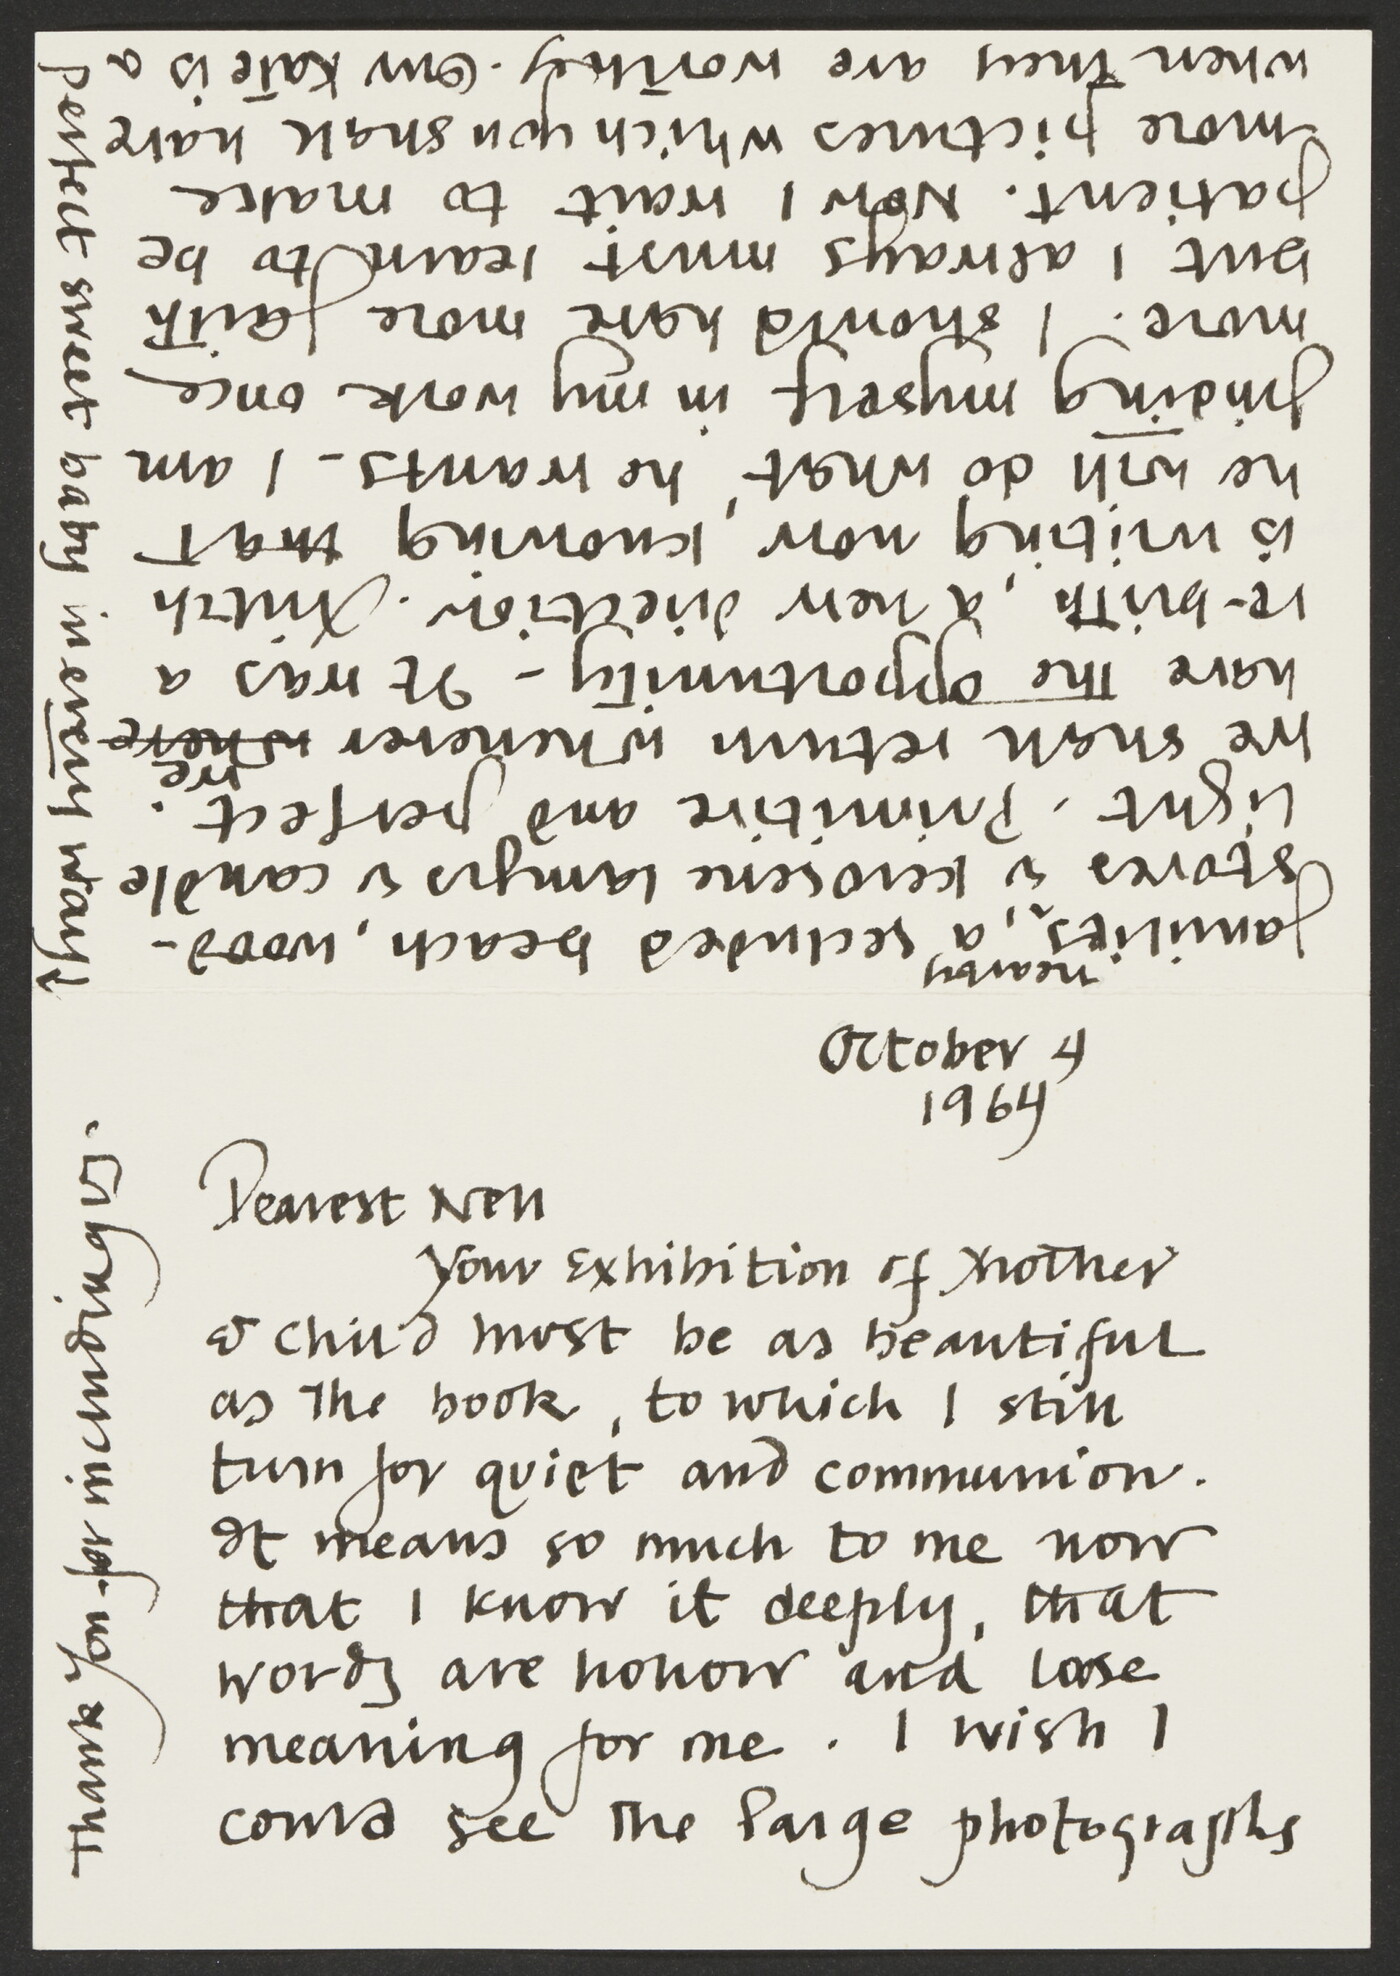 October 4
1964
Dearest Nell
Your Exhibition of Mother
& Child must be as beautiful
as the book, to which I still
turn for quiet and communion.
It means so much to me now
that I know it deeply, that
words are hollow and lose
meaning for me. I wish I
could see the large photographs
Thank you for including us.
families, a nearby secluded beach, wood-
stoves & kerosene lamps & candle
light. Primitive and perfect.
we shall return whenever where we
have the opportunity - It was a
re-birth, a new direction. Mitch
is writing now, knowing that
he will do what he wants - I am
finding myself in my work once
more. I should have more faith
but I always must learn to be
patient. Now I wait to make
more pictures which you shall have
when they are worthy. Our Kate is a
perfect sweet baby in every way!